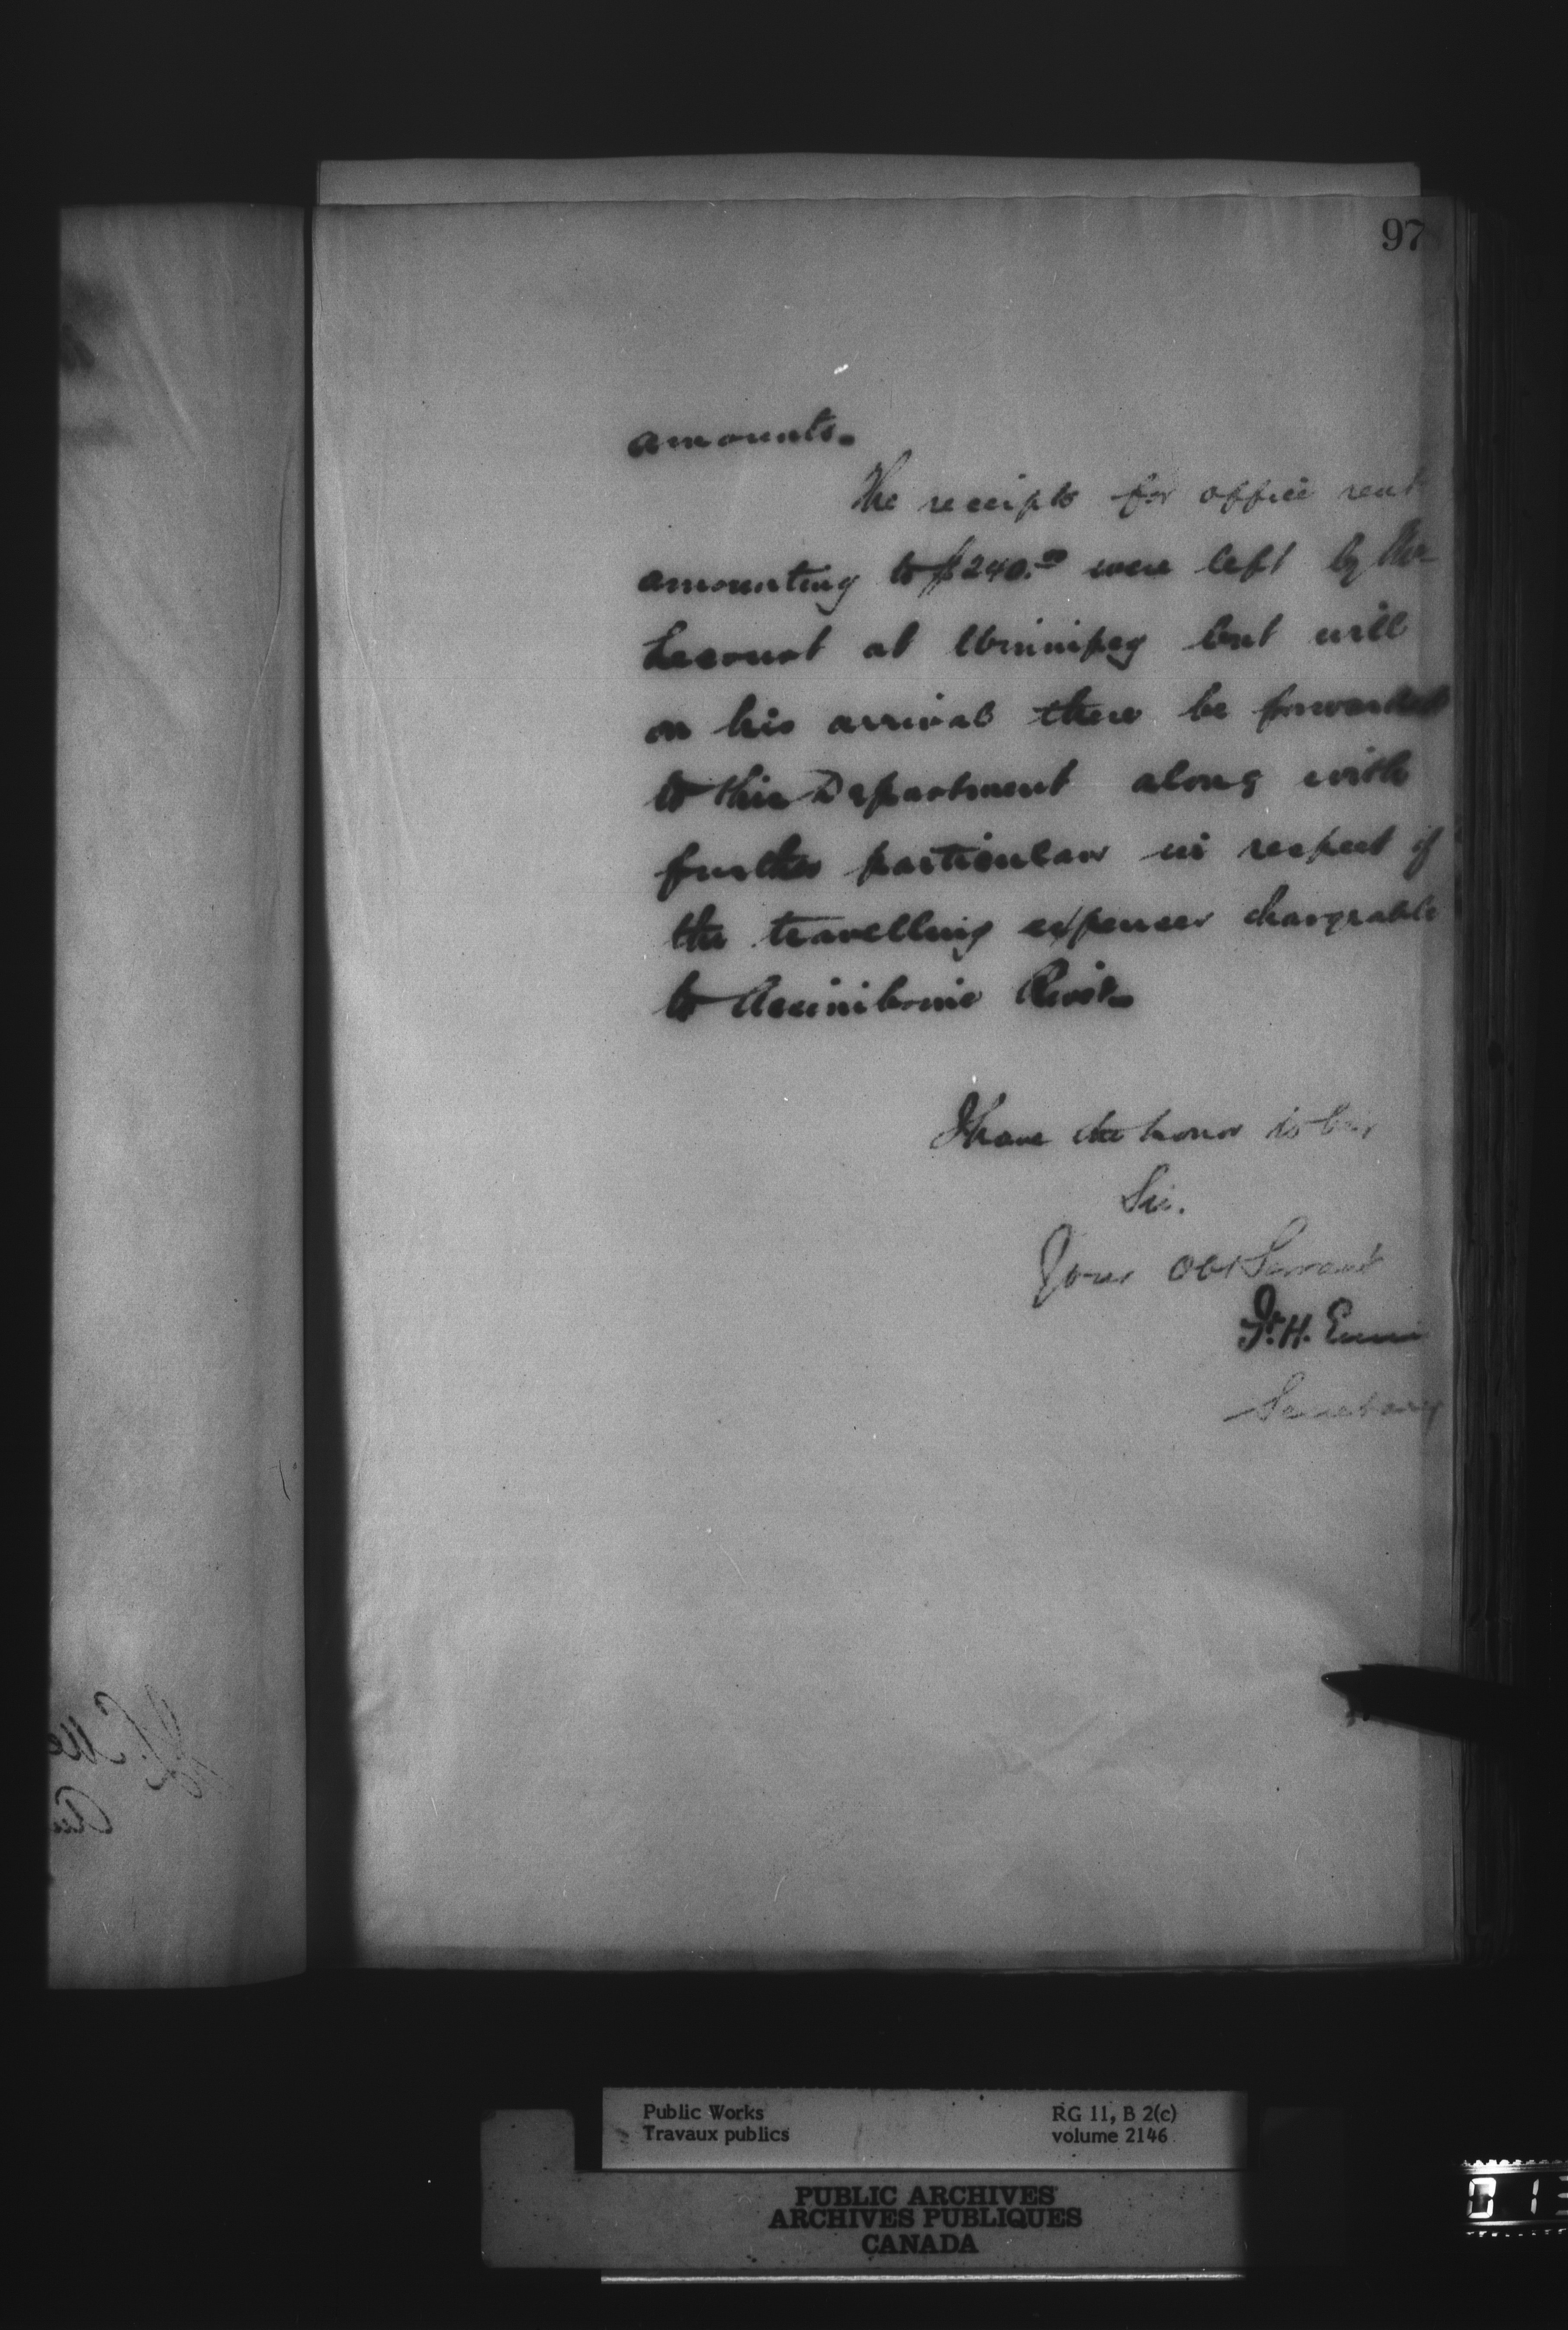 97
amounts.
The receipts for office rent
amounting to $240.00 were left by Mr
Lecourt at Winnipeg but will
on his arrival there be forwarded
to this Department along with
further particulars in respect of
the travelling expenses chargeable
to Assiniboine River.
I have the honor to be,
Sir.
Your Obt Servant
F. H. Ennis
Secretary
Public Works
Travaux publics
RG 11, B 2(c)
volume 2146
PUBLIC ARCHIVES
ARCHIVES PUBLIQUES
CANADA